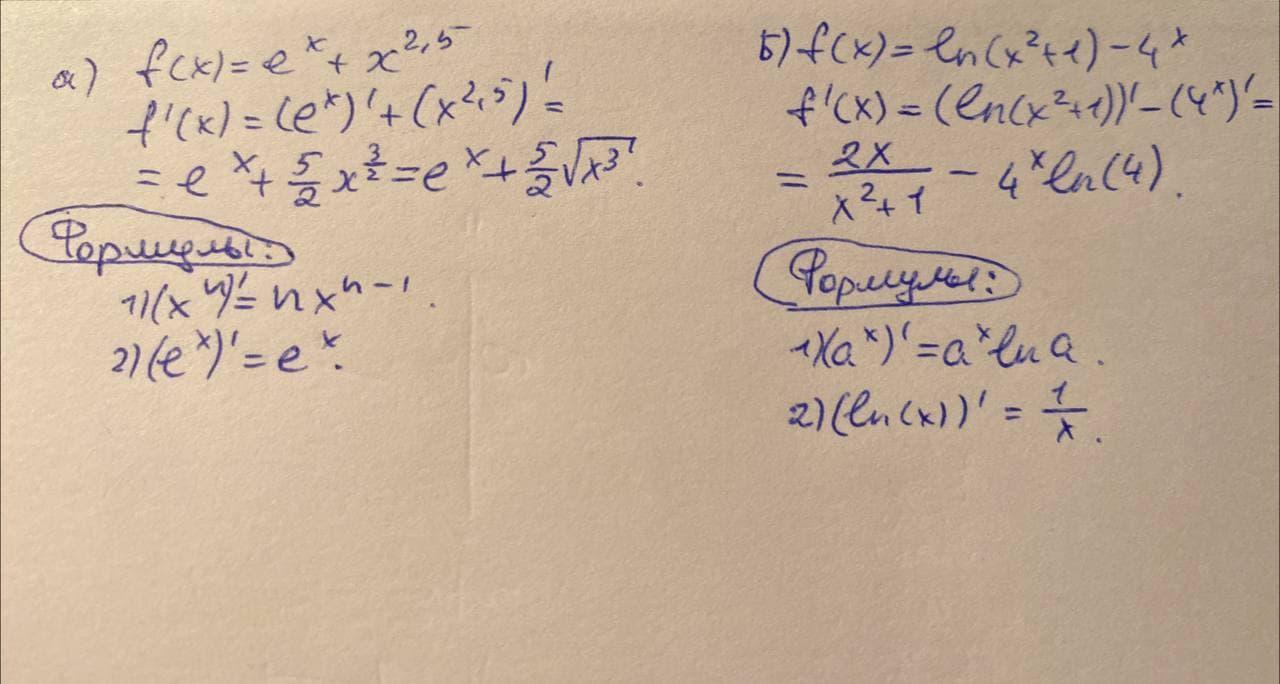 а) f(x) = e^x + x^{2,5}
f'(x) = (e^x)' + (x^{2,5})' =
= e^x + \frac{5}{2} x^{\frac{3}{2}} = e^x + \frac{5}{2} \sqrt{x^3}.
Формулы:
1) (x^n)' = n x^{n-1}.
2) (e^x)' = e^x.
б) f(x) = ln(x^2+1) - 4^x
f'(x) = (ln(x^2+1))' - (4^x)' =
= \frac{2x}{x^2+1} - 4^x ln(4).
Формулы:
1) (a^x)' = a^x ln a.
2) (ln(x))' = \frac{1}{x}.